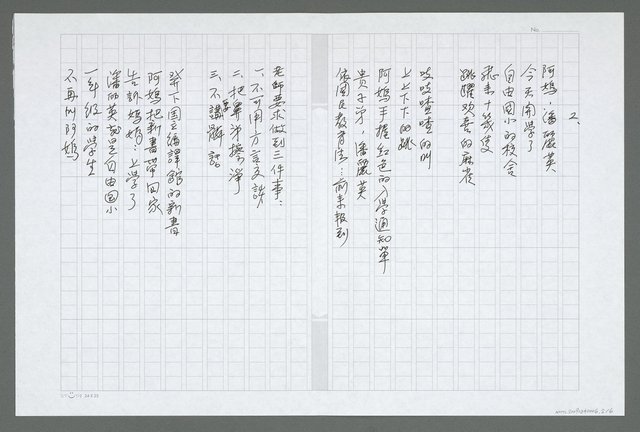 No.
2、
阿媽，潘麗英
今天開學了
自由國小的校舍
飛來十幾隻
跳躍歡喜的麻雀
吱吱喳喳的叫
上上下下的跳
阿媽手握紅色的入學通知單
貴子弟，潘麗英
依國民教育法…前來報到
老師要求做到三件事：
一、不可用方言交談
二、把鼻涕擤淨
三、不講髒話
發下國立編譯館的新書
阿媽把新書帶回家
告訴媽媽：上學了
潘麗英就是自由國小
一年級的學生
不再叫阿媽